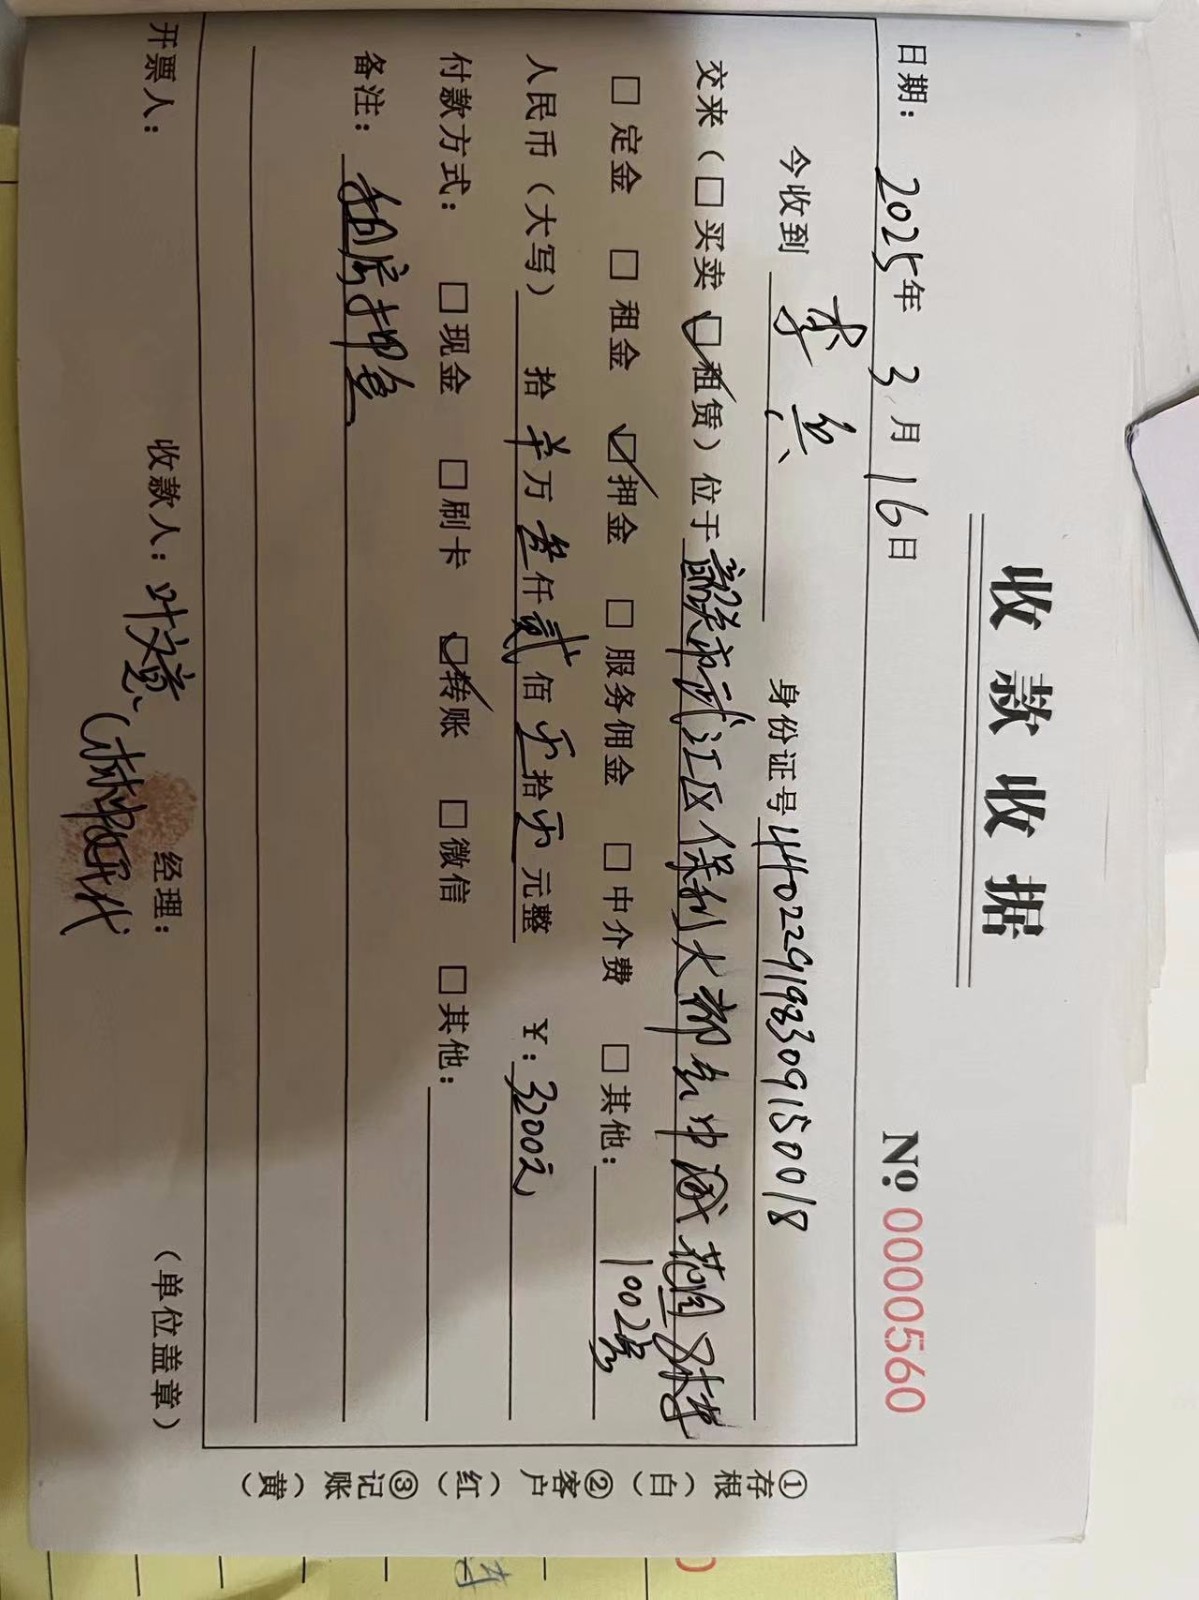 收款收据
№ 0000560
日期: 2025年 3月 16日
今收到 身份证号 440229198309150018
交来（□买卖 ☑租赁）位于韶关市武江区保利大都会中
1002房
□定金 □租金 ☑押金 □服务佣金 □中介费 □其他:
人民币（大写） 拾 万 叁仟贰佰零拾零元整 ¥: 3200元
付款方式: □现金 □刷卡 ☑转账 □微信 □其他:
备注: 租房押金
开票人: 收款人: 叶文意 经理: （单位盖章）
①存根（白） ②客户（红） ③记账（黄）